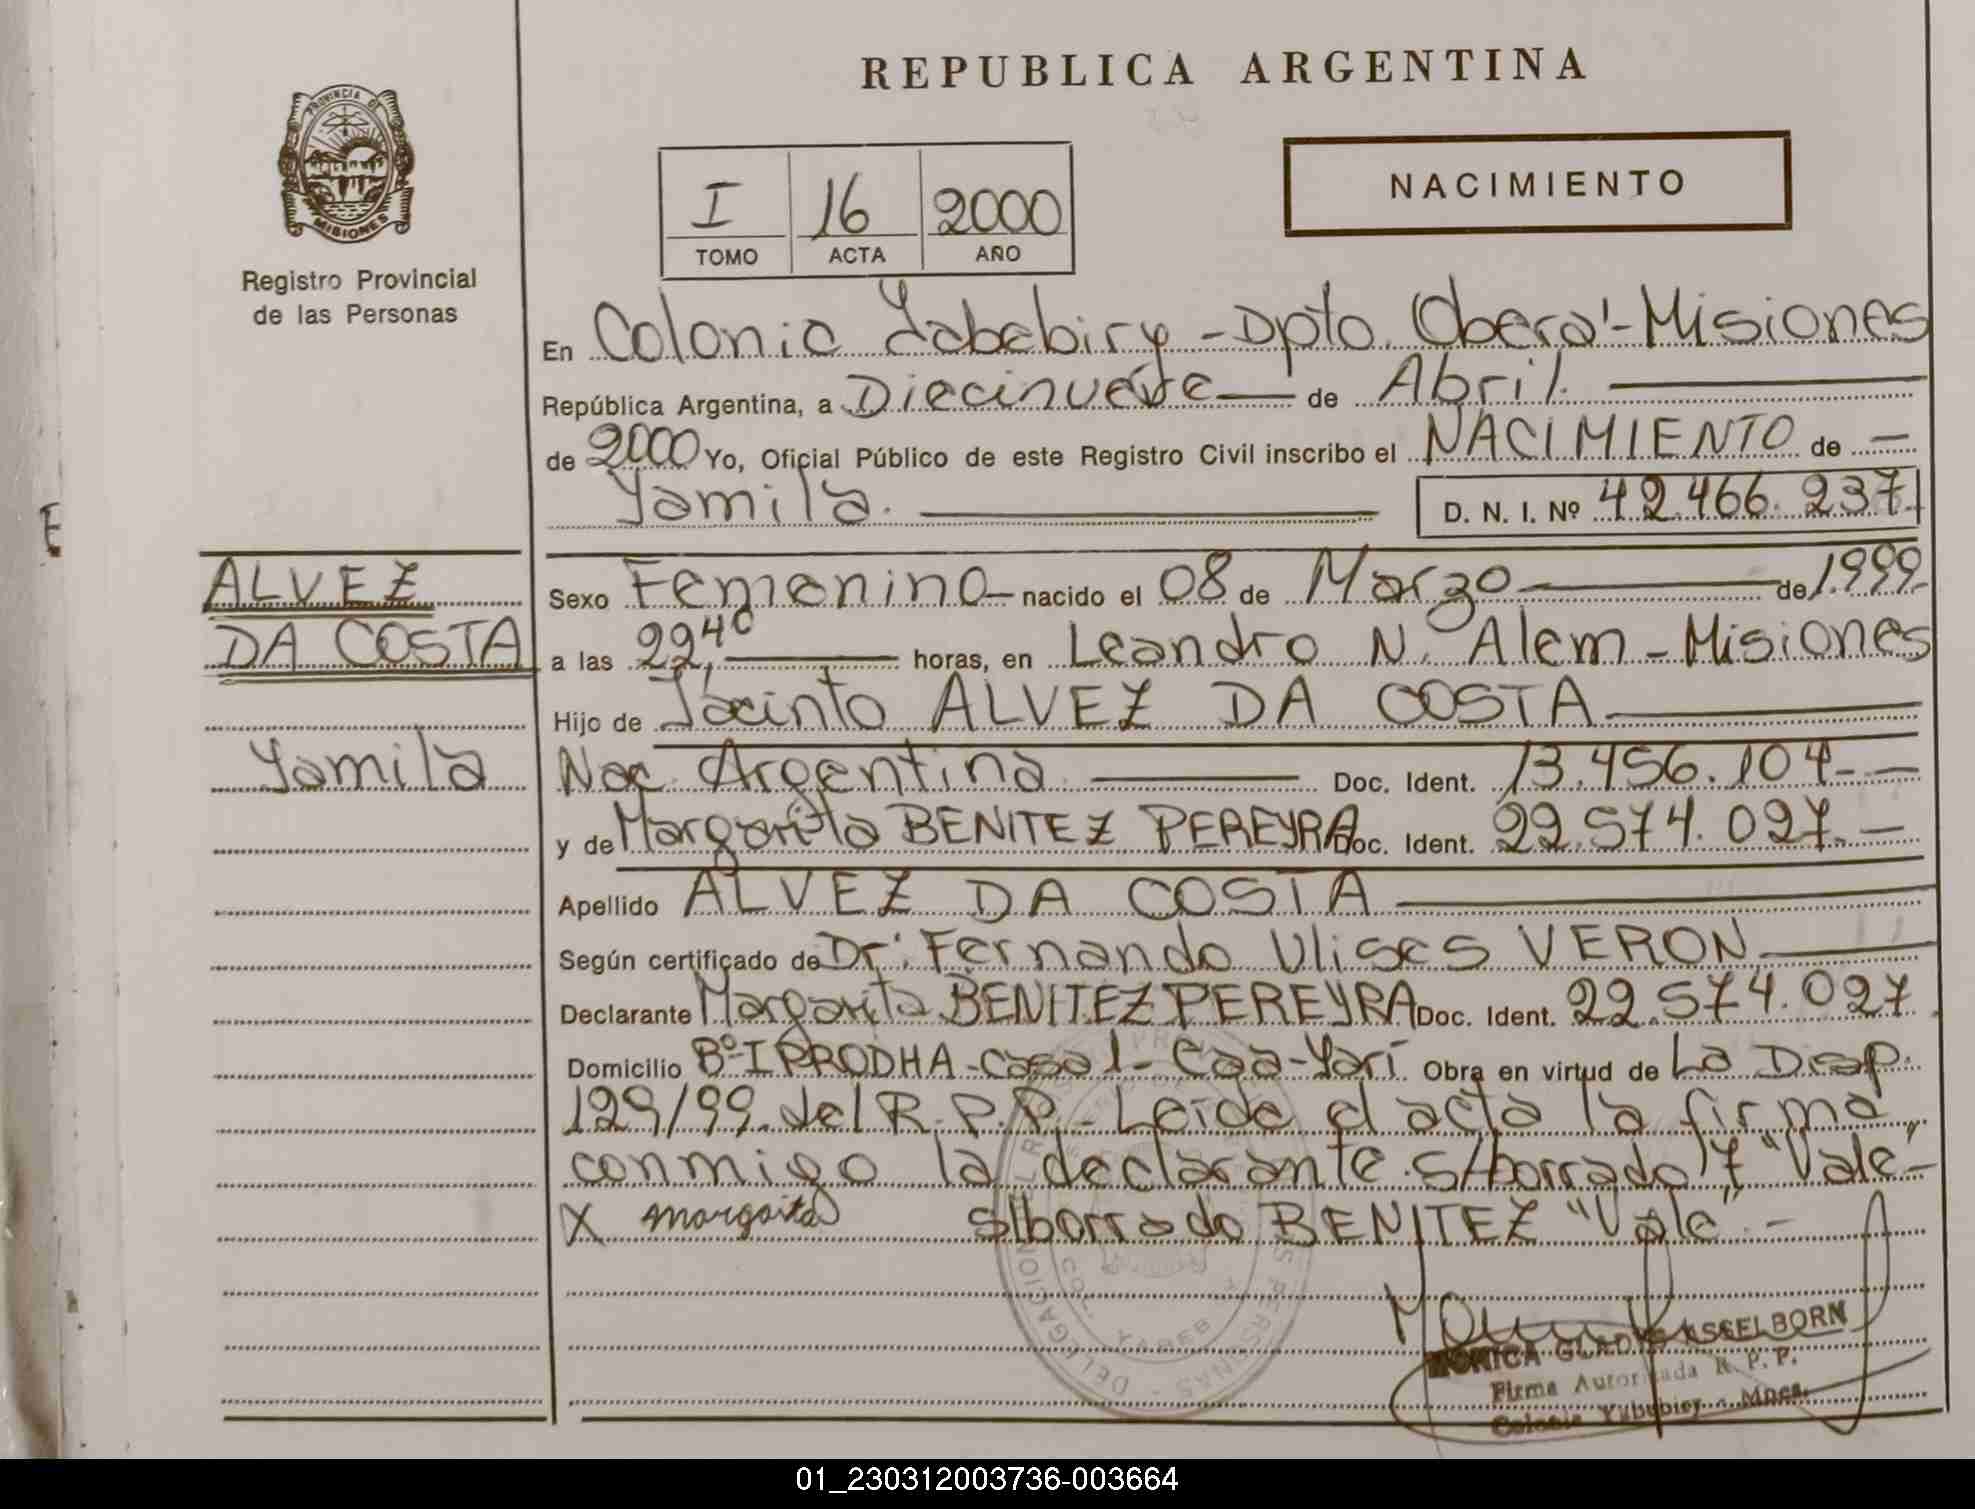 REPUBLICA ARGENTINA
PROVINCIA DE
MISIONES
Registro Provincial
de las Personas
I 16 2000
TOMO ACTA AÑO
NACIMIENTO
En Colonia Yabebiry - Dpto. Oberá - Misiones
República Argentina, a Diecinueve de Abril.
de 2000 Yo, Oficial Público de este Registro Civil inscribo el NACIMIENTO de
Yamila. D. N. I. Nº 42.466.237
ALVEZ
DA COSTA
Yamila
Sexo Femenino nacido el 08 de Marzo de 1999
a las 22,40 horas, en Leandro N. Alem - Misiones
Hijo de Jacinto ALVEZ DA COSTA
Nac. Argentina Doc. Ident. 13.456.104.-
y de Margarita BENITEZ PEREYRA Doc. Ident. 22.574.027.-
Apellido ALVEZ DA COSTA
Según certificado de Dr. Fernando Ulises VERON
Declarante Margarita BENITEZ PEREYRA Doc. Ident. 22.574.027
Domicilio Bº IPRODHA - Casa 1 - Caa-Yarí Obra en virtud de La Disp.
129/99 del R.P.P. - Leida el acta la firma
conmigo la declarante. s/borrado 7 "Vale" -
X Margarita s/borrado BENITEZ "Vale". -
MONICA GLADYS ASSELBORN
Firma Autorizada R. P. P.
Colonia Yabebiry - Mnes.
01_230312003736-003664